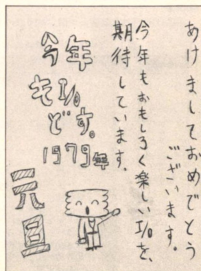 あけましておめでとう
ございます。
今年もおもしろく楽しいI/Oを、
期待しています。
今年
もI/O
どす。
1979年
元旦